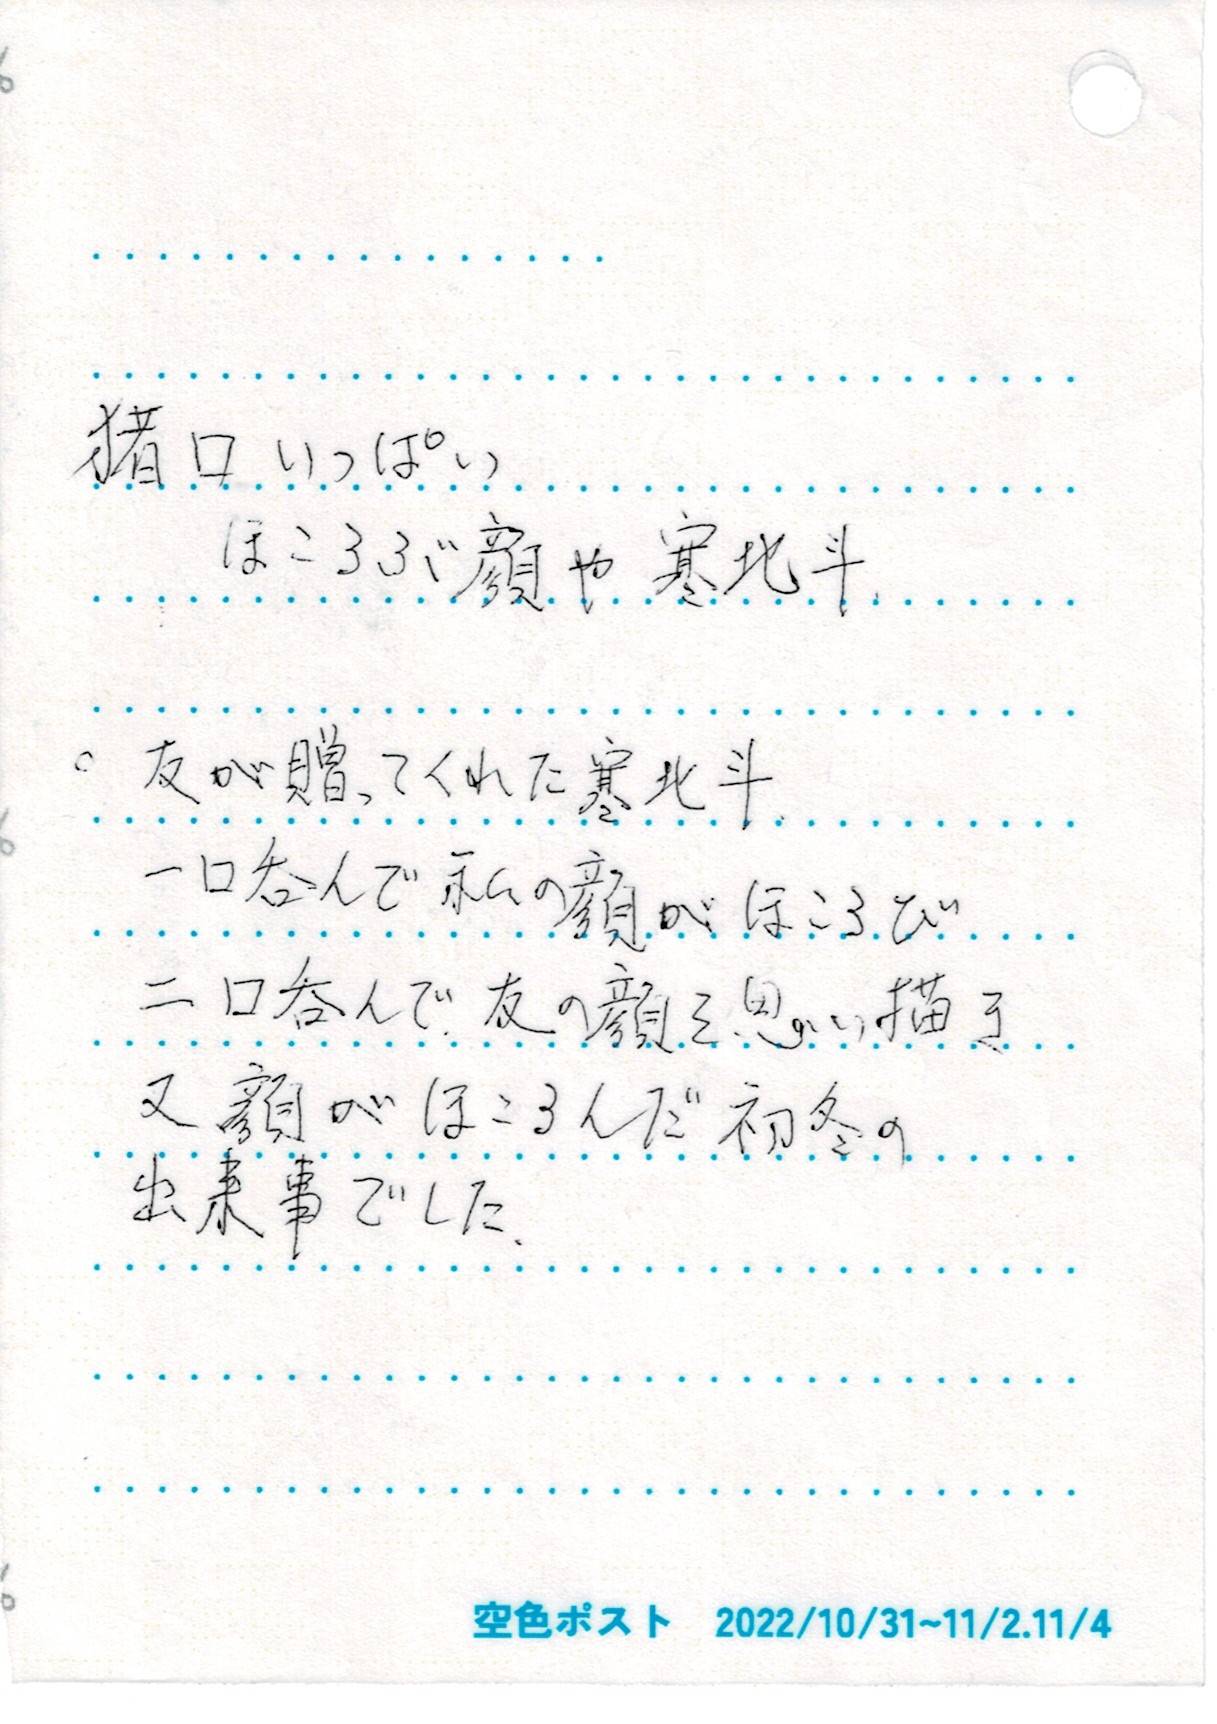 猪口いっぱい
ほころぶ顔や寒北斗.
。友が贈ってくれた寒北斗.
一口呑んで私の顔がほころび
二口呑んで.友の顔を思い描き
又顔がほころんだ初冬の
出来事でした.
空色ポスト 2022/10/31~11/2.11/4